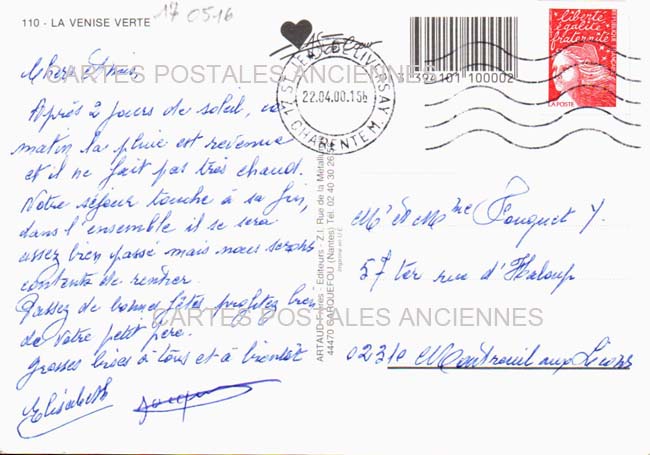 110 - LA VENISE VERTE
17 05-16
Chers Amis
Après 2 jours de soleil, ce
matin la pluie est revenue
et il ne fait pas très chaud.
Notre séjour touche à sa fin,
dans l'ensemble il se sera
assez bien passé mais nous serons
contents de rentrer.
Passez de bonnes fêtes profitez bien
de votre petit père.
Grosses bises à tous et à bientôt
Elisabeth
17 ST
22.04.00.15
CHARENTE M.
3394101 100002
liberté
égalité
fraternité
LA POSTE
ARTAUD Frères - Editeurs - Z.I. Rue de la Métallurgie
44470 CARQUEFOU (Nantes) Tél. 02 40 30 26
Imprimé en U.E.
Mr et Mme Fouquet Y.
57 ter rue d'Haloup
02310 Montreuil aux Lions
CARTES POSTALES ANCIENNES
CARTES POSTALES ANCIENNES